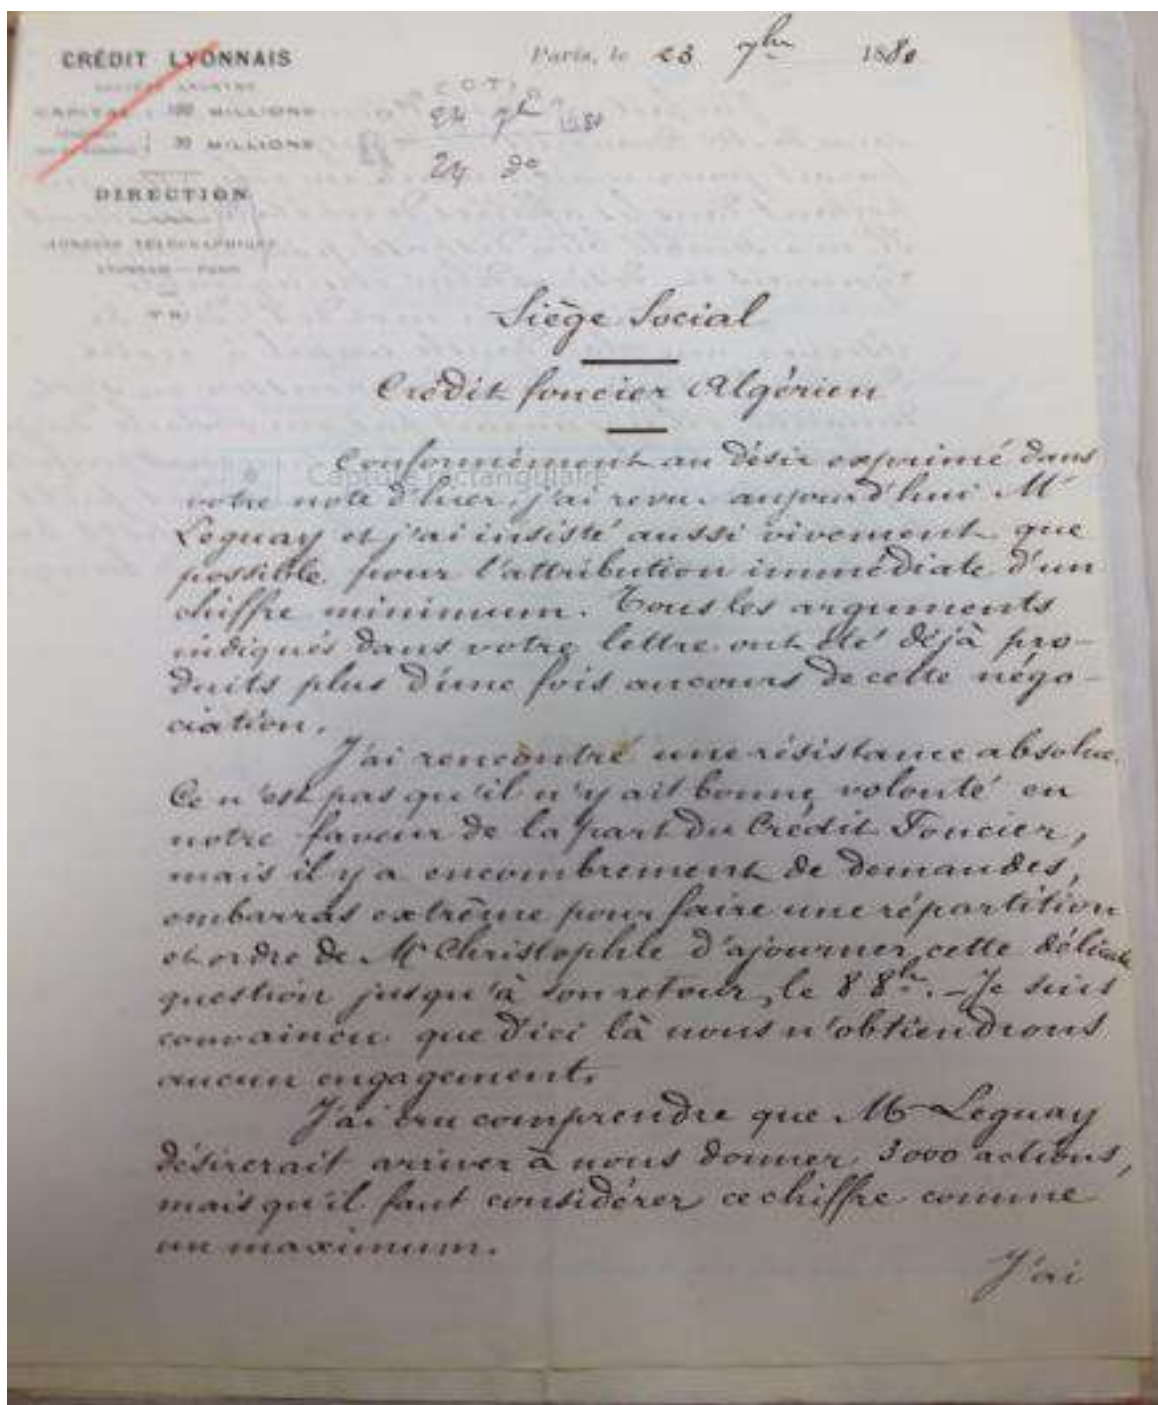 CRÉDIT LYONNAIS
SOCIÉTÉ ANONYME
CAPITAL : 100 MILLIONS
30 MILLIONS
DIRECTION
ADRESSE TÉLÉGRAPHIQUE
PARIS
Paris, le 23 7bre 1880
24 7bre 1880
24 do
Siège Social
Crédit foncier Algérien
Conformément au désir exprimé dans
votre note d'hier, j'ai revu aujourd'hui Mr
Leguay et j'ai insisté aussi vivement que
possible pour l'attribution immédiate d'un
chiffre minimum. Tous les arguments
indiqués dans votre lettre ont été déjà pro-
duits plus d'une fois au cours de cette négo-
ciation.
J'ai rencontré une résistance absolue.
Ce n'est pas qu'il n'y ait bonne volonté en
notre faveur de la part du Crédit Foncier,
mais il y a encombrement de demandes,
embarras extrême pour faire une répartition
et ordre de Mr Christophle d'ajourner cette délicate
question jusqu'à son retour, le 8 8bre. - Je suis
convaincu que d'ici là nous n'obtiendrons
aucun engagement.
J'ai cru comprendre que Mr Leguay
désirerait arriver à nous donner 3000 actions,
mais qu'il faut considérer ce chiffre comme
un maximum.
J'ai
Capture rectangulaire